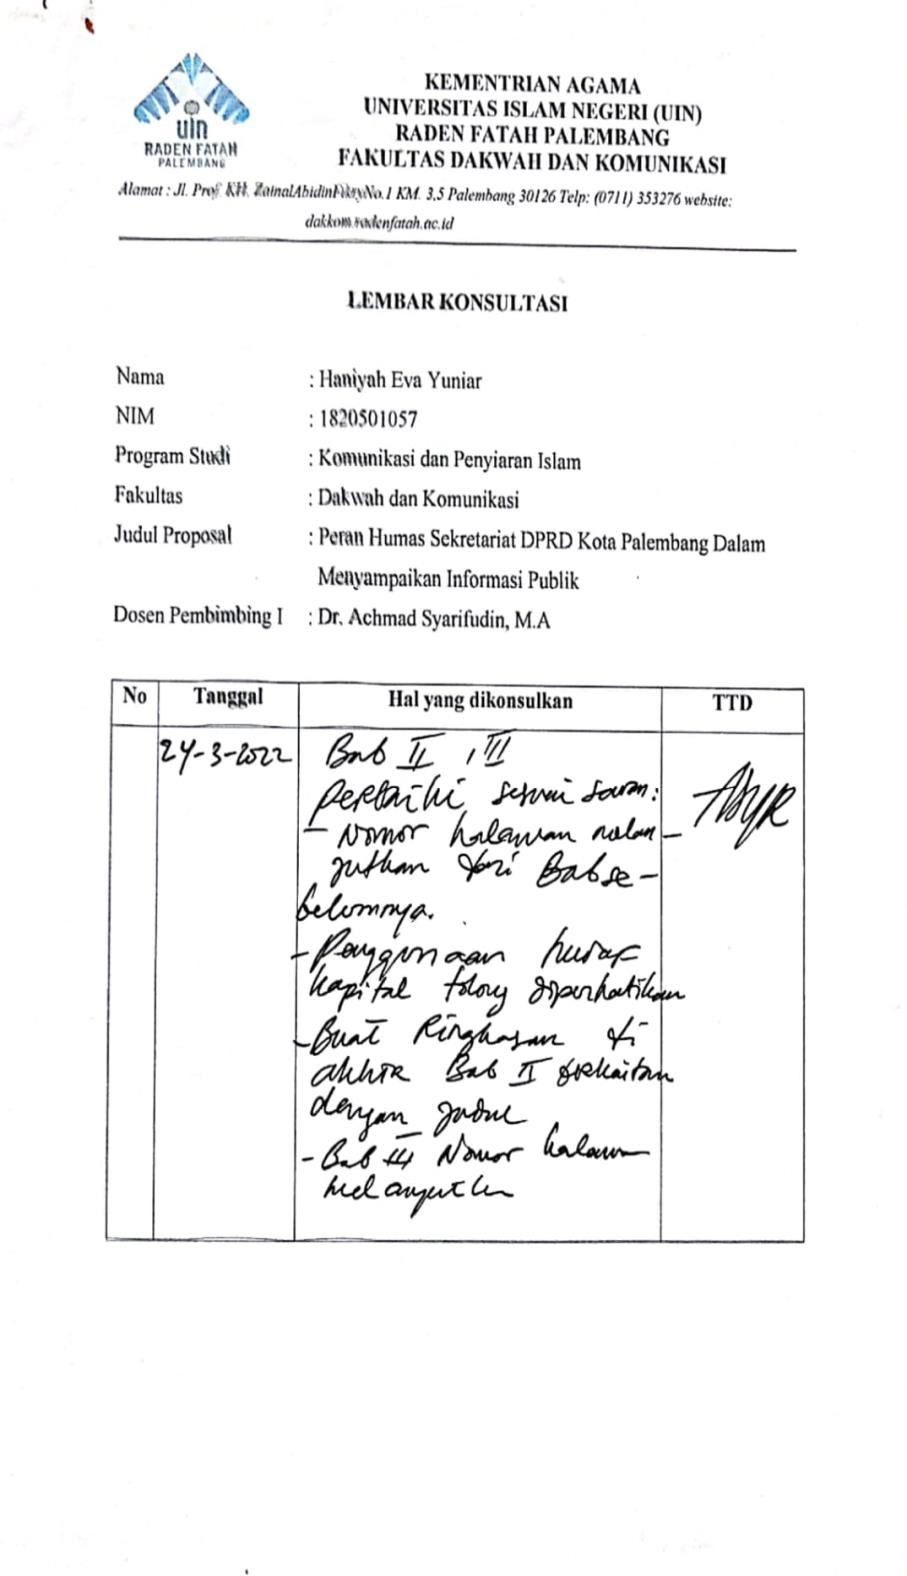 uin
RADEN FATAH
PALEMBANG
KEMENTRIAN AGAMA
UNIVERSITAS ISLAM NEGERI (UIN)
RADEN FATAH PALEMBANG
FAKULTAS DAKWAH DAN KOMUNIKASI
Alamat : Jl. Prof. KH. ZainalAbidinFikryNo.1 KM. 3,5 Palembang 30126 Telp: (0711) 353276 website:
dakkom.radenfatah.ac.id
LEMBAR KONSULTASI
Nama : Haniyah Eva Yuniar
NIM : 1820501057
Program Studi : Komunikasi dan Penyiaran Islam
Fakultas : Dakwah dan Komunikasi
Judul Proposal : Peran Humas Sekretariat DPRD Kota Palembang Dalam
Menyampaikan Informasi Publik
Dosen Pembimbing I : Dr. Achmad Syarifudin, M.A
No Tanggal Hal yang dikonsulkan TTD
24-3-2022 Bab II , III
perbaiki sesuai saran:
- Nomor halaman melan-
jutkan dari Bab se-
belumnya.
- Penggunaan huruf
kapital tolong diperhatikan
- Buat Ringkasan di
akhir Bab II berkaitan
dengan judul
- Bab III Nomor halaman
melanjutkan